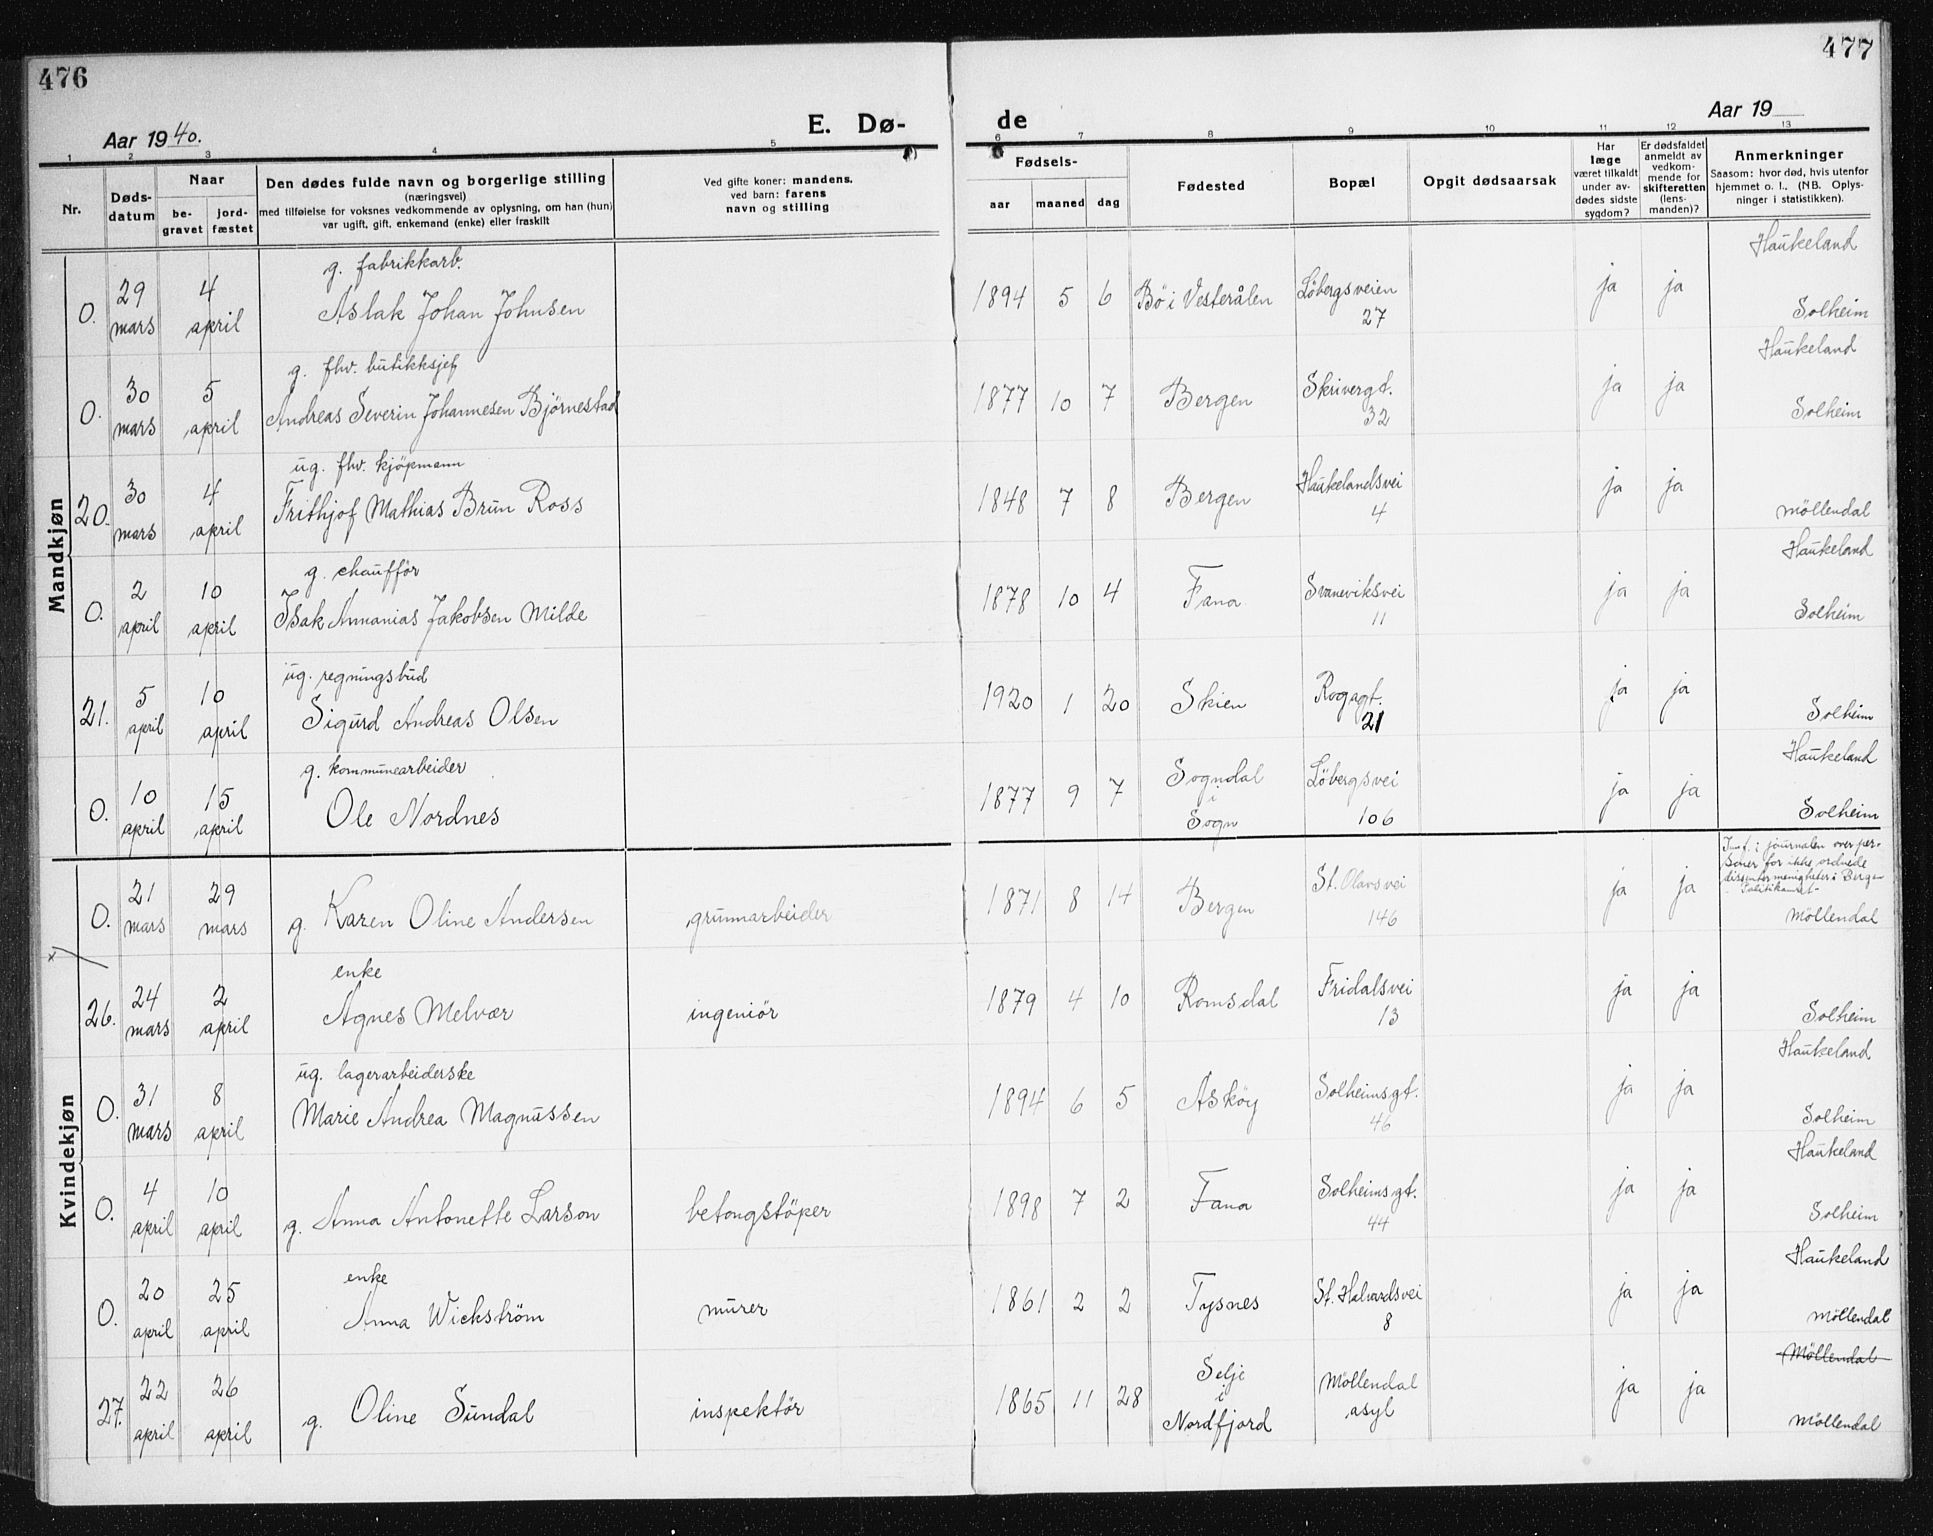 476
477
Aar 1940.
E. Dø-
de
Aar 19
1 2 3 4 5 6 7 8 9 10 11 12 13
Nr.
Døds-
datum
Naar
be-
gravet
jord-
fæstet
Den dødes fulde navn og borgerlige stilling
(næringsvei)
med tilføielse for voksnes vedkommende av oplysning, om han (hun)
var ugift, gift, enkemand (enke) eller fraskilt
Ved gifte koner: mandens.
ved barn: farens
navn og stilling
Fødsels-
aar maaned dag
Fødested
Bopæl
Opgit dødsaarsak
Har
læge
været tilkaldt
under av-
dødes sidste
sygdom?
Er dødsfaldet
anmeldt av
vedkom-
mende for
skifteretten
(lens-
manden)?
Anmerkninger
Saasom: hvor død, hvis utenfor
hjemmet o. l., (NB. Oplys-
ninger i statistikken).
Mandkjøn
g. fabrikkarb. Haukeland
0. 29 4 Aslak Johan Johnsen 1894 5 6 Bö i Vesterålen Löbergsveien ja ja
mars april 27 Solheim
g. fhv. butikksjef Haukeland
0. 30 5 Andreas Severin Johannesen Björnestad 1877 10 7 Bergen Skrivergt. ja ja
mars april 32 Solheim
ug. fhv. kjöpmann
20. 30 4 Frithjof Mathias Brun Ross 1848 7 8 Bergen Haukelandsvei ja ja
mars april 4 Möllendal
g. chaufför Haukeland
0. 2 10 Isak Annanias Jakobsen Milde 1878 10 4 Fana Svaneviksvei ja ja
april april 11 Solheim
ug. regningsbud
21. 5 10 Sigurd Andreas Olsen 1920 1 20 Skien Rogagt. ja ja
april april 21 Solheim
g. kommunearbeider Haukeland
0. 10 15 Ole Nordnes 1877 9 7 Sogndal Löbergsvei ja ja
i
april april Sogn 106 Solheim
Kvindekjøn
Innf. i journalen over per-
soner for ikke ordnede
dissentermenigheter i Bergen
Politikamret-
0. 21 29 g. Karen Oline Andersen grunnarbeider 1871 8 14 Bergen St. Olavsvei ja ja
mars mars 146 Möllendal
x
enke
26. 24 2 Agnes Melvær ingeniör 1879 4 10 Romsdal Fridalsvei ja ja
mars april 13 Solheim
ug. lagerarbeiderske Haukeland
0. 31 8 Marie Andrea Magnussen 1894 6 5 Asköy Solheimsgt. ja ja
mars april 46 Solheim
Haukeland
0. 4 10 g. Anna Antonette Larson betongstöper 1898 7 2 Fana Solheimsgt. ja ja
april april 44 Solheim
enke Haukeland
0. 20 25 Anna Wickström murer 1861 2 2 Tysnes St. Halvardsvei ja ja
april april 8 Möllendal
Möllendal
27. 22 26 g. Oline Sundal inspektör 1865 11 28 Selje Möllendal ja ja
i asyl
april april Nordfjord Möllendal